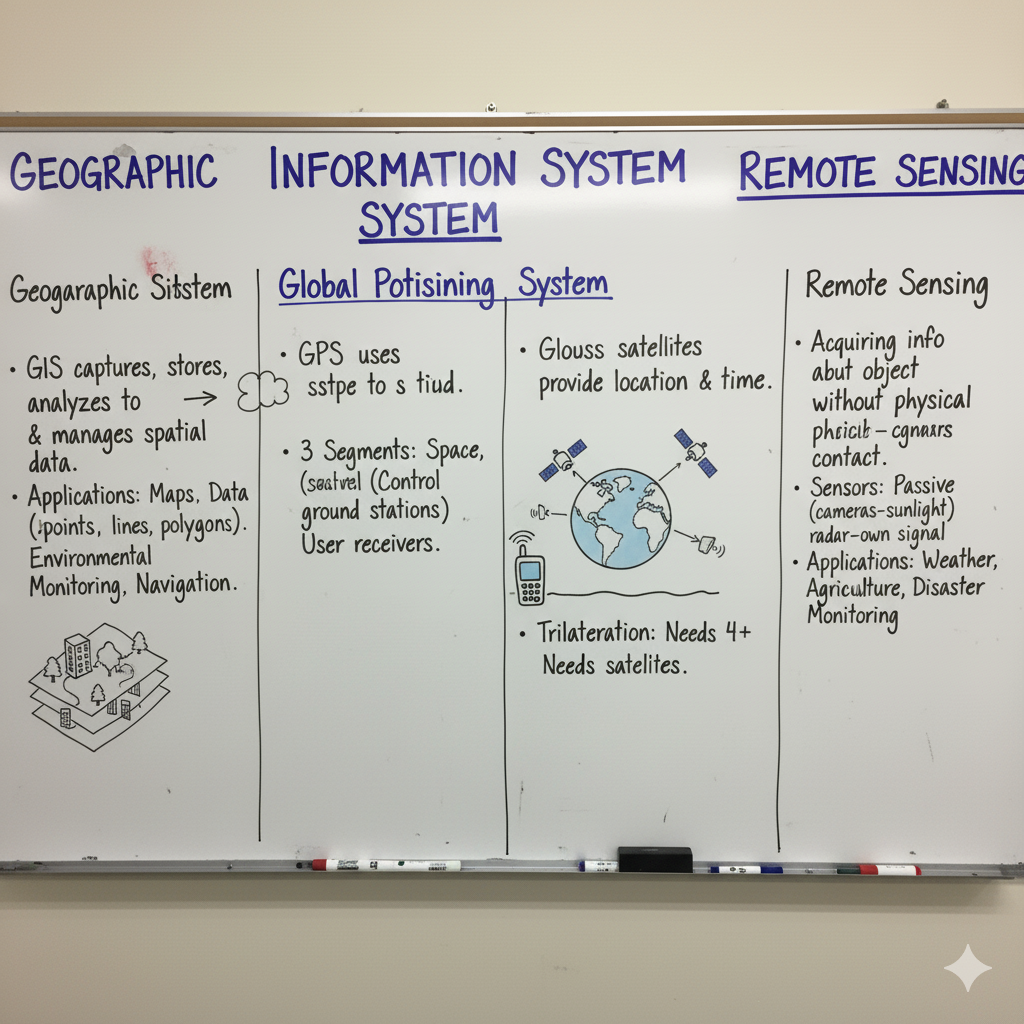 GEOGRAPHIC INFORMATION SYSTEM
SYSTEM
REMOTE SENSING
Geogaraphic Sitstem
• GIS captures, stores,
analyzes to
& manages spatial
data.
• Applications: Maps, Data
(points, lines, polygons).
Environmental
Monitoring, Navigation.
Global Potisining System
• GPS uses
sstpe to s tiud.
• 3 Segments: Space,
(Control
ground stations)
User receivers.
• Glouss satellites
provide location & time.
• Trilateration: Needs 4+
Needs satelites.
Remote Sensing
• Acquiring info
abut object
without physical
contact.
• Sensors: Passive
(cameras-sunlight)
radar-own signal
• Applications: Weather,
Agriculture, Disaster
Monitoring